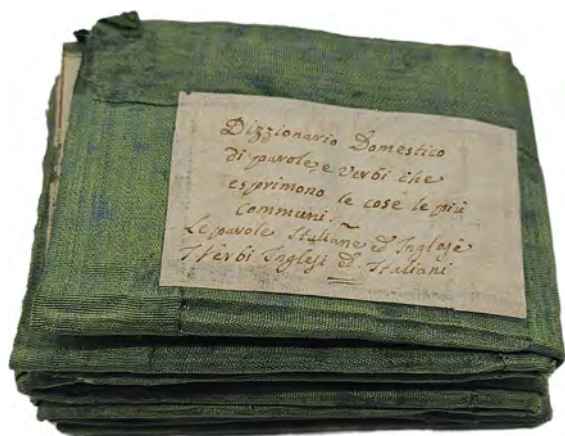 Dizzionario Domestico
di parole, e Verbi che
esprimono le cose le più
communi. ~
Le parole Italiane ed Inglese
I Verbi Inglesi ed Italiani